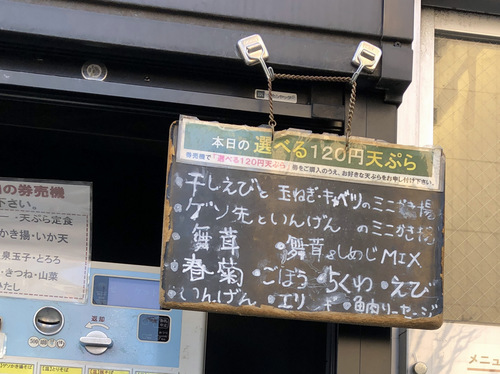 本日の 選べる120円天ぷら
券売機で「選べる120円天ぷら」券をご購入のうえ、お好きな天ぷらをお申し付け下さい。
・干しえびと 玉ねぎ・キャベツのミニかき揚
・ゲソ先といんげん のミニかき揚
・舞茸 ・舞茸&しめじMIX
・春菊 ・ごぼう ・ちくわ ・えび
・いんげん ・エリンギ ・魚肉ソーセージ
の券売機
下さい。
天ぷら定食
かき揚・いか天
泉玉子・とろろ
・きつね・山菜
いたし
返却
メニュ